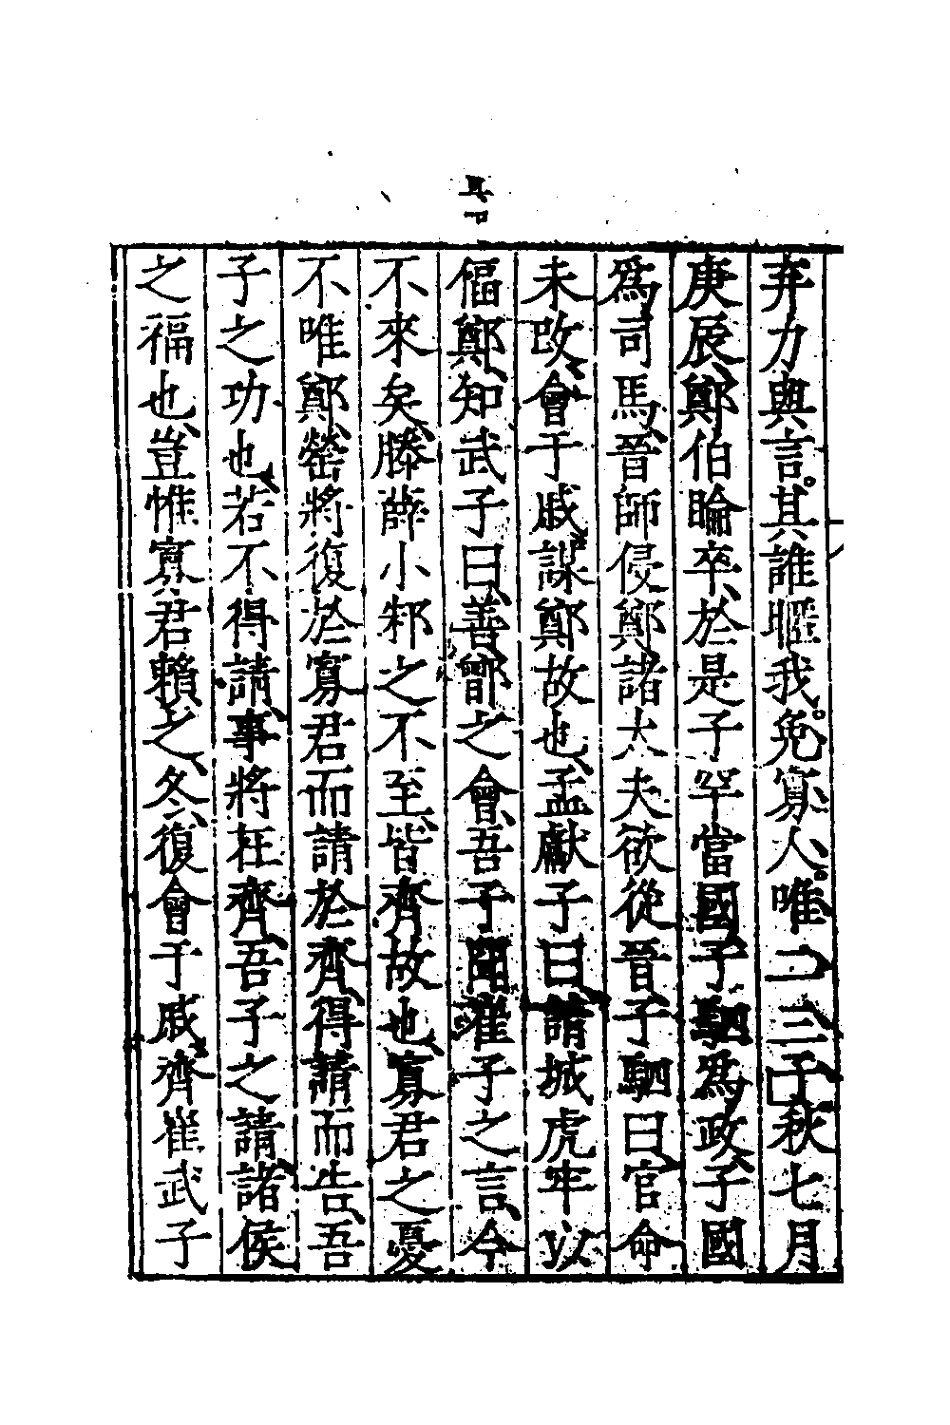 弃力與言其誰暱我免寡人唯二三子秋七月
庚辰鄭伯睔卒於是子罕當國子駟爲政子國
爲司馬晉師侵鄭諸大夫欲從晉子駟曰官命
未改會于戚謀鄭故也孟獻子曰請城虎牢以
偪鄭知武子曰善鄫之會吾子聞崔子之言今
不來矣滕薛小邾之不至皆齊故也寡君之憂
不唯鄭罃將復於寡君而請於齊得請而告吾
子之功也若不得請事將在齊吾子之請諸侯
之福也豈惟寡君賴之冬復會于戚齊崔武子